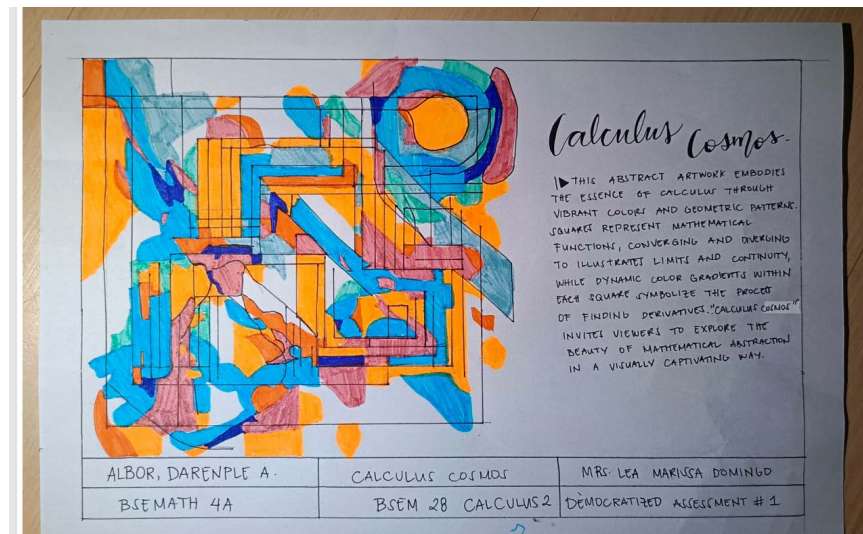 Calculus Cosmos.
THIS ABSTRACT ARTWORK EMBODIES
THE ESSENCE OF CALCULUS THROUGH
VIBRANT COLORS AND GEOMETRIC PATTERNS.
SQUARES REPRESENT MATHEMATICAL
FUNCTIONS, CONVERGING AND DIVERGING
TO ILLUSTRATES LIMITS AND CONTINUITY,
WHILE DYNAMIC COLOR GRADIENTS WITHIN
EACH SQUARE SYMBOLIZE THE PROCESS
OF FINDING DERIVATIVES. "CALCULUS COSMOS"
INVITES VIEWERS TO EXPLORE THE
BEAUTY OF MATHEMATICAL ABSTRACTION
IN A VISUALLY CAPTIVATING WAY.
ALBOR, DARENPLE A.
CALCULUS COSMOS
MRS. LEA MARISSA DOMINGO
BSEMATH 4A
BSEM 28 CALCULUS 2
DEMOCRATIZED ASSESSMENT #1